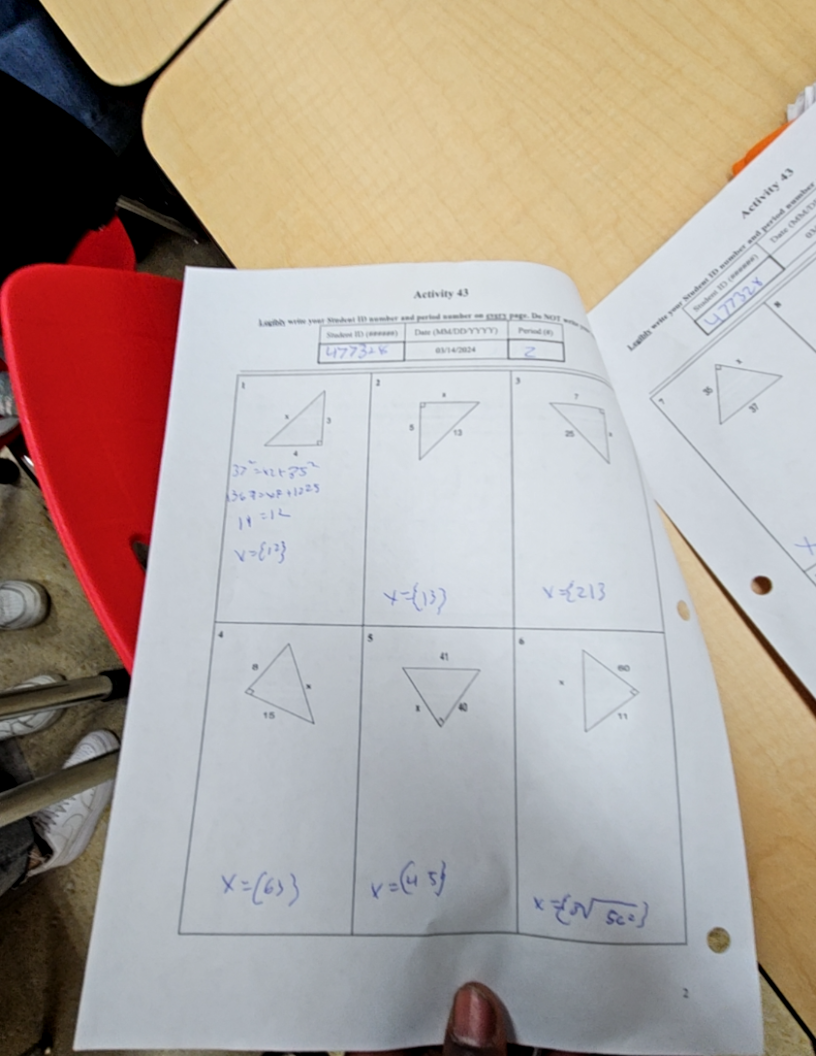 Activity 43
Legibly write your Student ID number and period number on every page. Do NOT write
Student ID (######) Date (MM/DD/YYYY) Period (#)
03/14/2024 2
1
x
3
4
x={12}
2
x
5
13
x={13}
3
7
25
x
x={21}
4
8
x
15
x={63}
5
41
x
40
x={45}
6
60
x
11
2
Activity 43
Legibly write your Student ID number and period number
Student ID (######) Date (MM/D
47732x
03
7
x
35
37
8
x